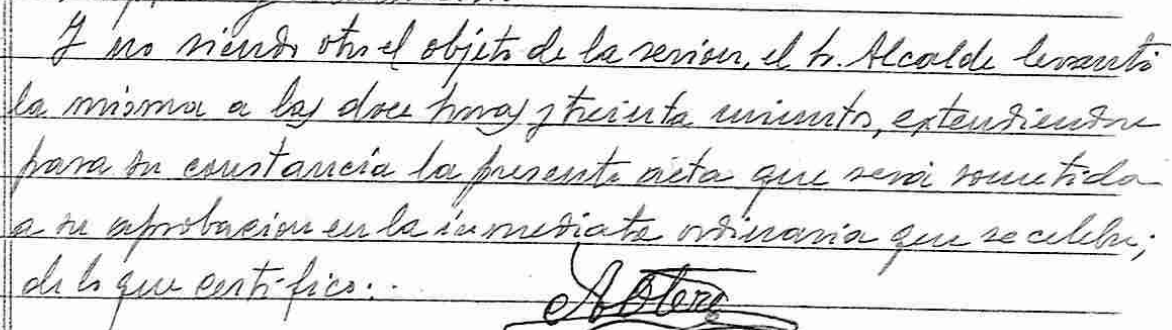 Y no siendo otro el objeto de la sesion, el Sr. Alcalde levantó
la misma a las doce horas y treinta minutos, extendiendose
para su constancia la presente acta que será sometida
a su aprobacion en la inmediata ordinaria que se celebre;
de lo que certifico.-